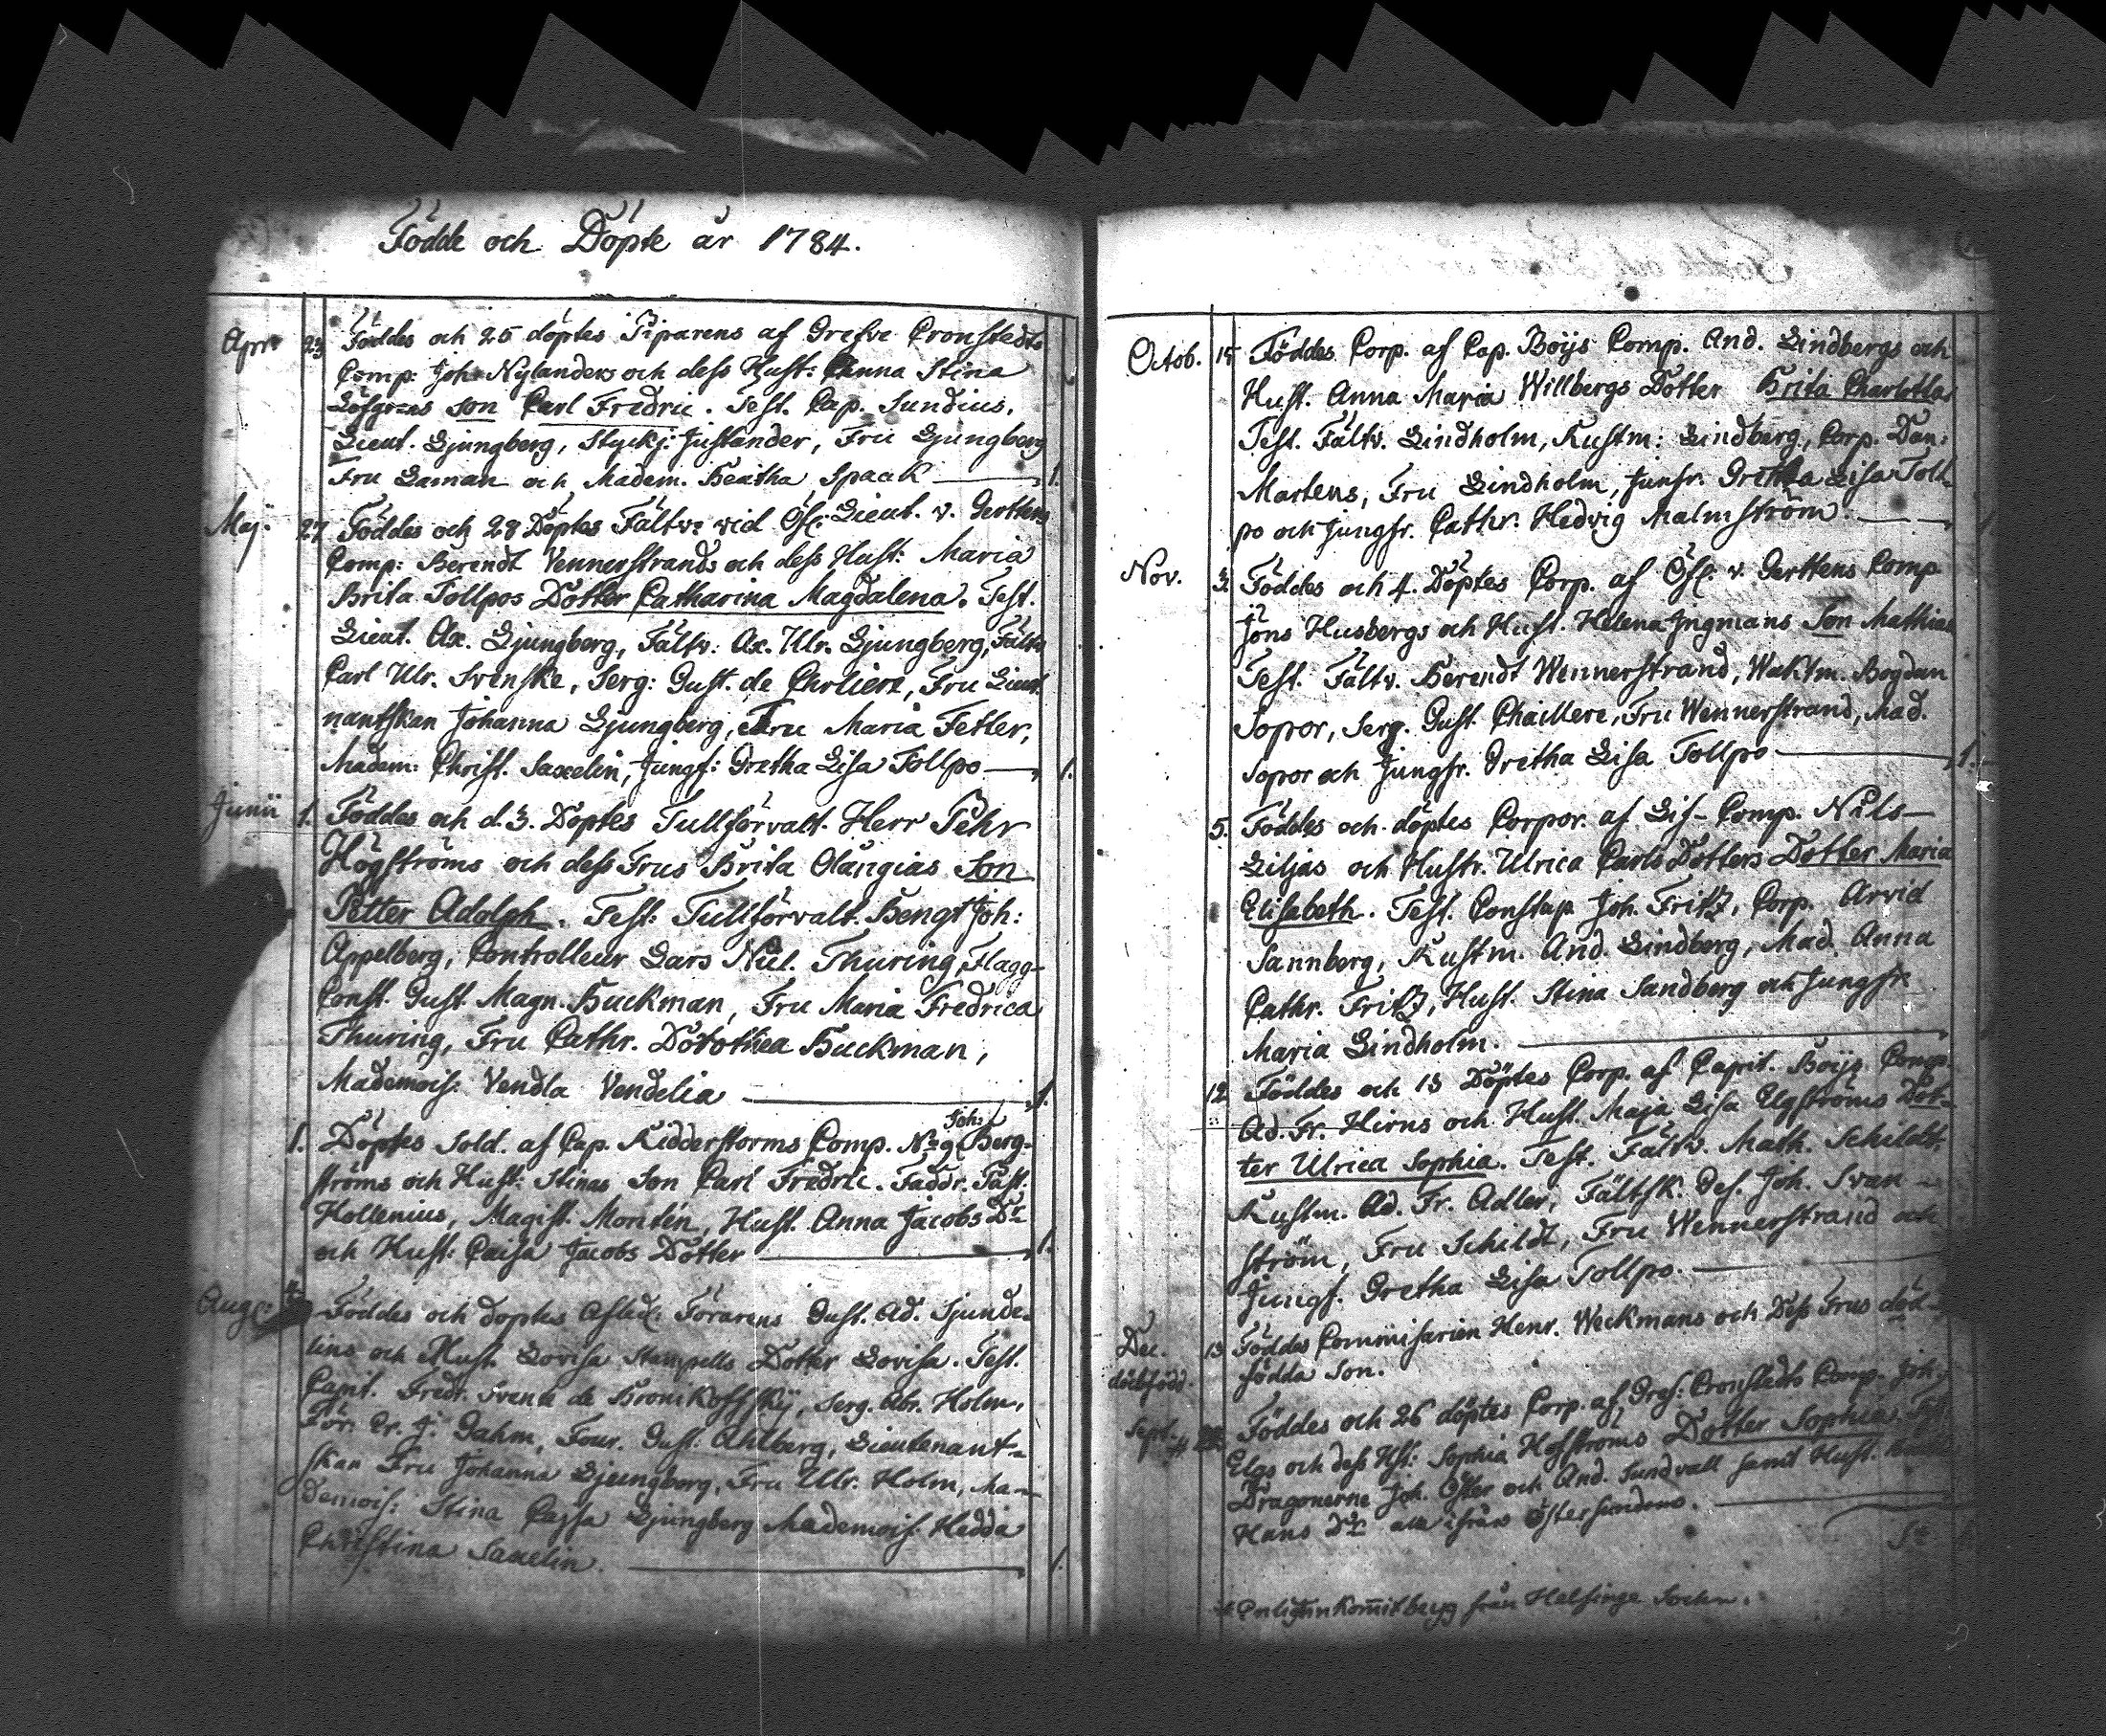 Födde och Döpte år 1784.
Apr. 23 Föddes och 25 döptes Piparens af Grefve Cronstedts
Comp: Joh. Nylanders och dess Hust: Anna Stina
Löfgrens son Carl Fredric. Test. Cap. Sundius,
Lieut. Ljungberg, Styckj. Justander, Fru Ljungberg
Fru Laman och Madem. Beatha Spaak 1.
Maj. 27 Föddes och 28 Döptes Fältv: vid Öfl. Lieut. v. Gerttens
Comp: Berendt Vennerstrands och dess Hust: Maria
Brita Tollpos Dotter Catharina Magdalena. Test.
Lieut. Ax. Ljungberg, Fältv: Ax. Ulr. Ljungberg, Fältv.
Carl Ulr. Svenske, Serg: Gust. de Charliere, Fru Lieut.
nantskan Johanna Ljungberg, Fru Maria Fetler,
Madem: Christ. Saxelin, Jungf: Gretha Lisa Tollpo 1.
Junii 1. Föddes och d. 3. Döptes Tullförvalt. Herr Pehr
Högströms och dess Frus Brita Olangias Son
Petter Adolph. Test: Tullförvalt. Bengt Joh:
Appelberg, Controlleur Lars Nul. Thuring, Flagg-
Const. Gust. Magn. Buckman, Fru Maria Fredrica
Thuring, Fru Cathr. Dorothea Buckman,
Mademois: Vendla Vendelia 1.
Joh:
1. Döptes Sold. af Cap. Ridderstorms Comp. No 9 Berg-
ströms och Hust: Stinas Son Carl Fredric. Faddr. Past.
Hollenius, Magist. Montén, Hust. Anna Jacobs Dr
och Hust: Caisa Jacobs Dotter 1.
Aug: 4 Föddes och döptes Afsked. Förarens Gust. Ad. Sjunde-
lins och Hust. Lovisa Stampells Dotter Lovisa. Test.
Capit. Fredr. Svenk de Bronikoffsky, Serg. Abr. Holm,
För. Er. J. Dahm, Four. Gust: Ahlberg, Lieutenant-
skan Fru Johanna Ljungberg, Fru Ulr. Holm, Ma-
demois: Stina Cajsa Ljungberg Mademois: Hedda
Christina Saxelin. 1.
Octob. 15 Föddes Corp. af Cap. Böijs Comp. And. Lindbergs och
Hust. Anna Maria Willbergs Dotter Brita Charlotta
Test. Fältv. Lindholm, Rustm: Lindberg, Corp. Dan:
Martens, Fru Lindholm, Junfr. Gretha Lisa Toll-
po och Jungfr. Cathr. Hedvig Malmström.
Nov. 3. Föddes och 4. Döptes Corp. af Öfl. v. Gerttens Comp
Jöns Husbergs och Hust. Helena Ingmans Son Mathias
Test. Fältv. Berendt Wennerstrand, Waktm. Bogdan
Sopor, Serg. Gust. Chaillere, Fru Wennerstrand, Mad.
Sopor och Jungfr. Gretha Lisa Tollpo 1.
5. Föddes och döptes Corpor. af Lif-Comp. Nils
Liljas och Hustr. Ulrica Carls Dotters Dotter Maria
Elisabeth. Test. Constap. Joh. Fritz, Corp. Arvid
Sannberg, Rustm. And. Lindberg, Mad. Anna
Cathr. Fritz, Hust. Stina Sandberg och Jungfr.
Maria Lindholm.
12 Föddes och 13 Döptes Corp. af Capit. Böijs Comp.
Ad. Fr. Hirns och Hust. Maja Lisa Elgströms Dot-
ter Ulrica Sophia. Test. Fältv. Math. Schildt,
Rustm. Ad. Fr. Adler, Fältsk. Ges. Joh. Svan-
ström, Fru Schildt, Fru Wennerstrand och
Jungf. Gretha Lisa Tollpo.
Dec. 13 Föddes Commisarien Henr. Weckmans och Dess Frus död-
dödfödd. födda Son.
Sept. Föddes och 26 döptes Corp. af Gref: Cronstedts Comp. Joh.
Elgs och dess Hst: Sophia Hofströms Dotter Sophia. Test.
Dragonerne Joh. Öster och And. Sundvall samt Hust.
Hans Dr alla ifrån Östersundom.
från Helsinge Sockn.